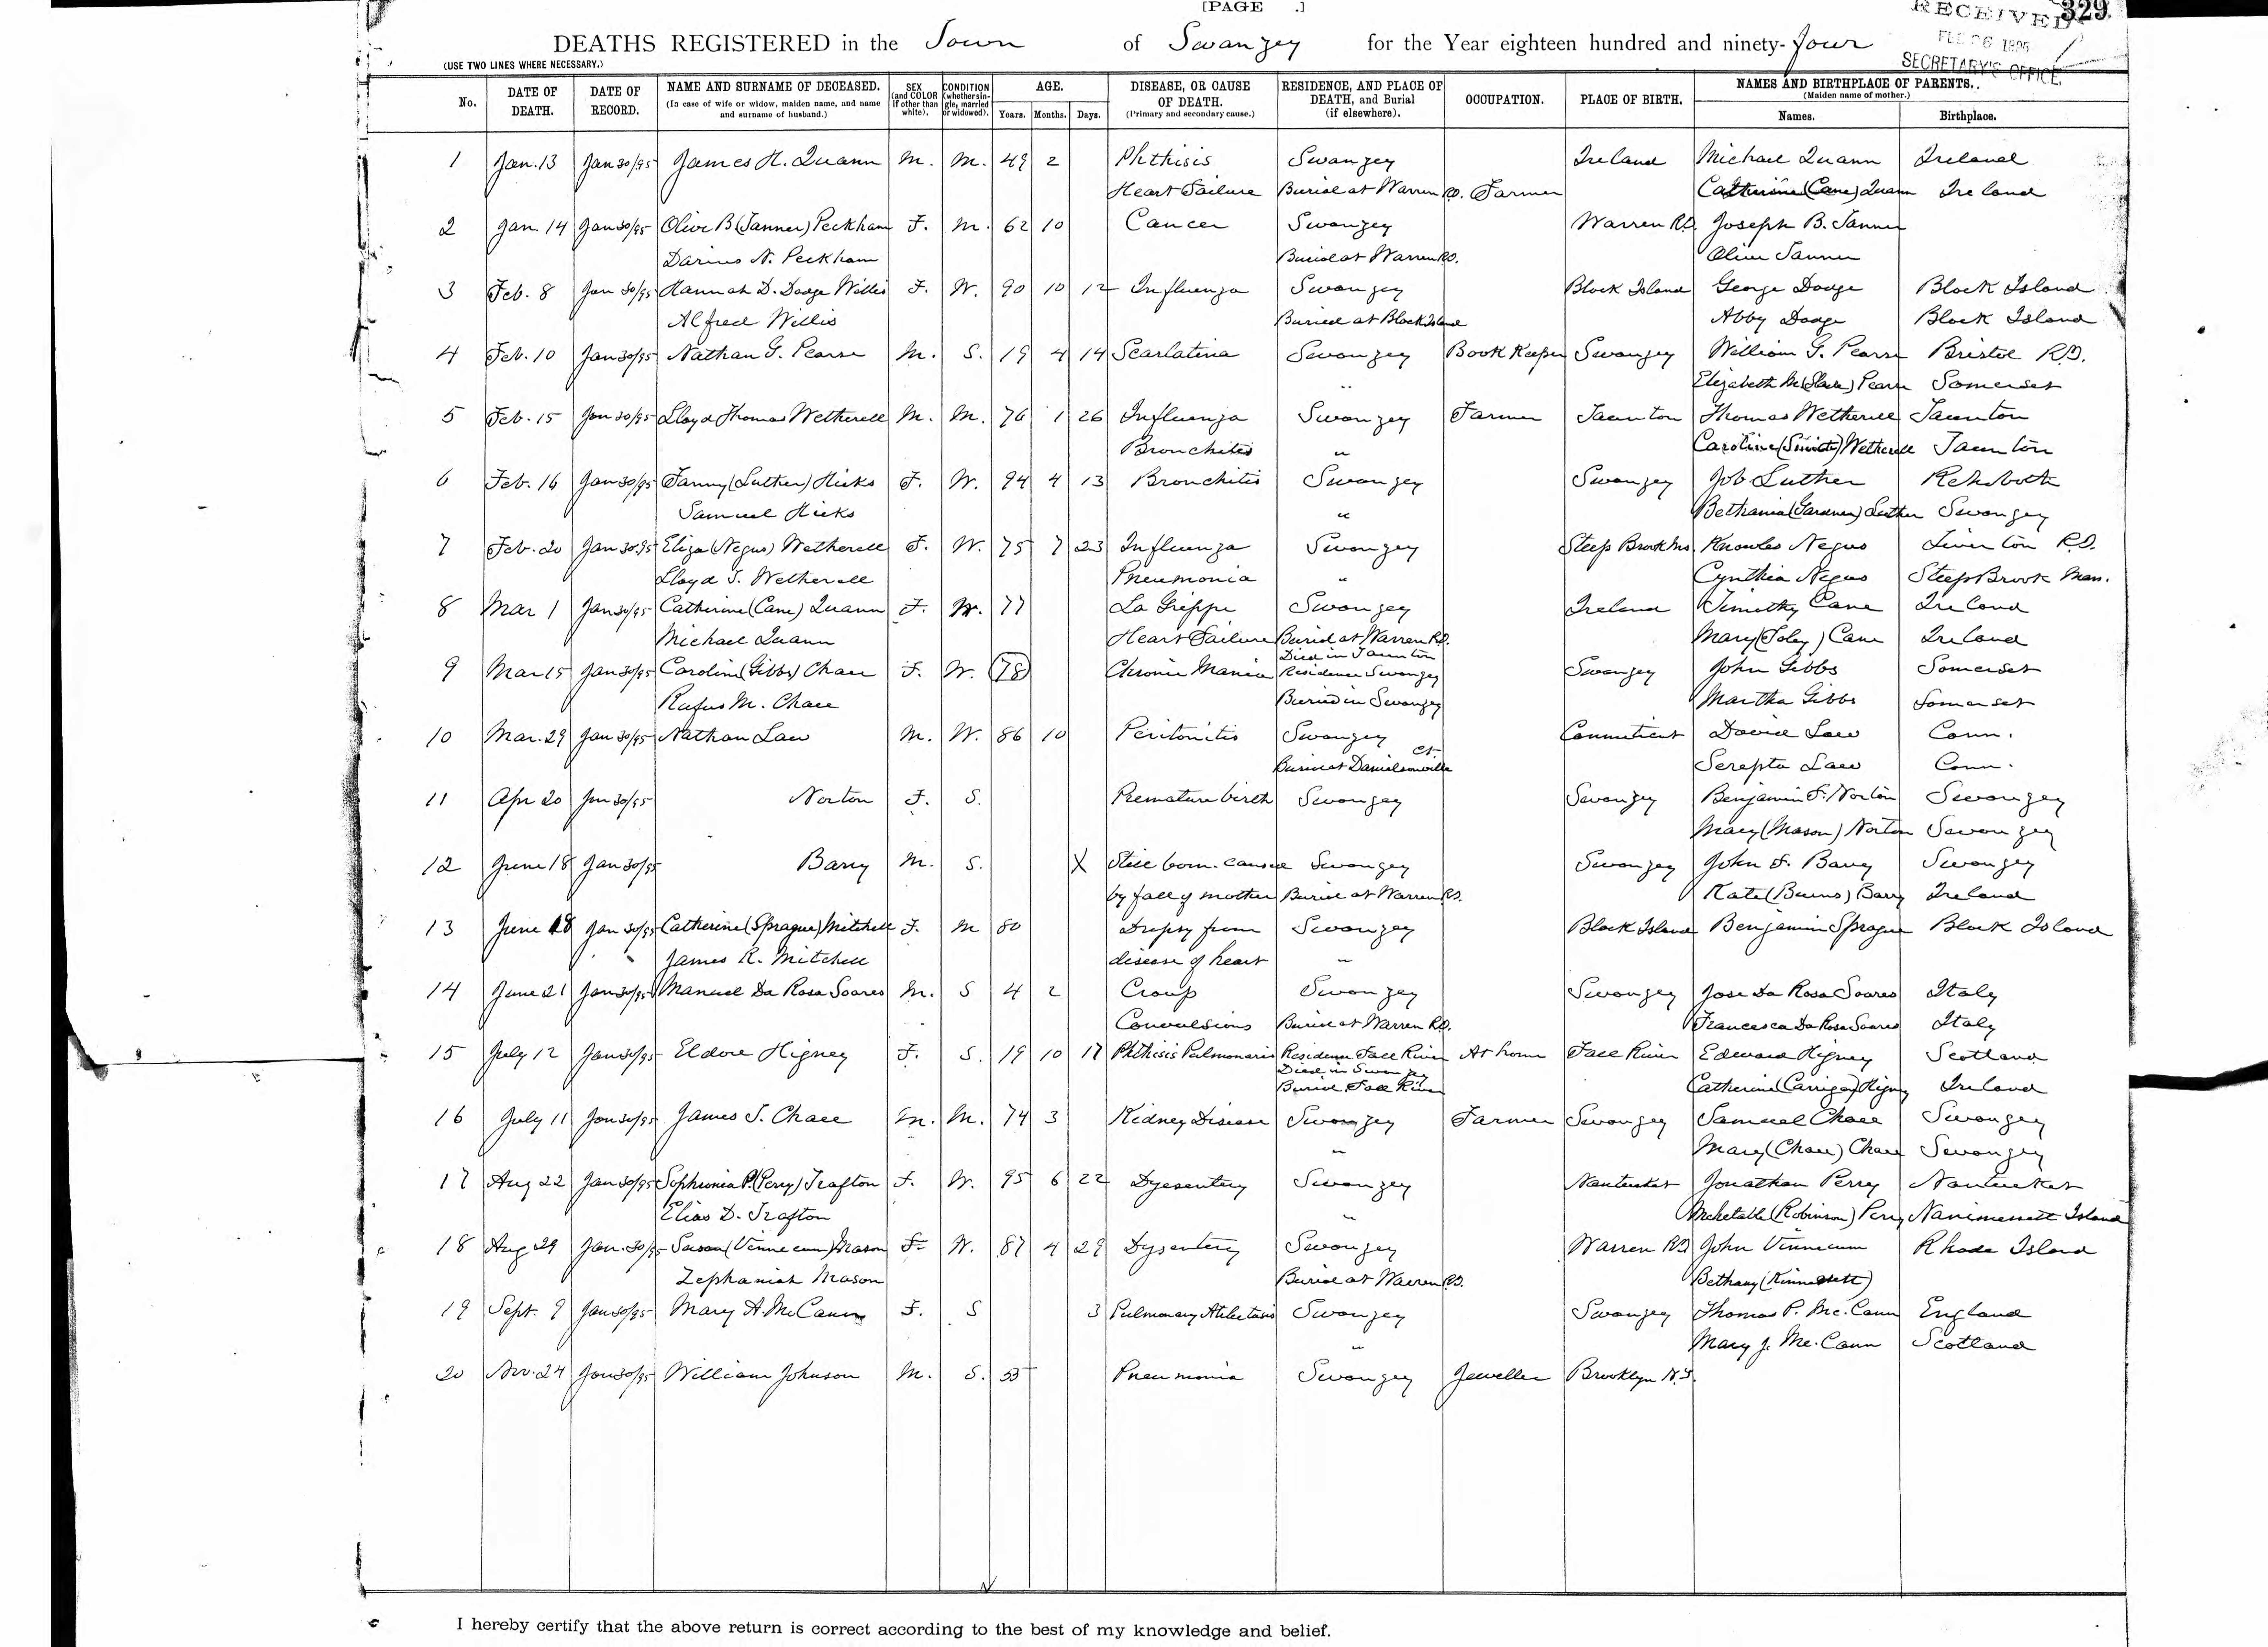 [PAGE .]
RECEIVED 329.
FEB 6 1895
SECRETARY'S OFFICE.
DEATHS REGISTERED in the Town of Swanzey for the Year eighteen hundred and ninety-four
(USE TWO LINES WHERE NECESSARY.)
No. DATE OF DEATH. DATE OF RECORD. NAME AND SURNAME OF DECEASED. (In case of wife or widow, maiden name, and name and surname of husband.) SEX (and COLOR if other than white). CONDITION (whether single, married or widowed). AGE. Years. Months. Days. DISEASE, OR CAUSE OF DEATH. (Primary and secondary cause.) RESIDENCE, AND PLACE OF DEATH, and Burial (if elsewhere). OCCUPATION. PLACE OF BIRTH. NAMES AND BIRTHPLACE OF PARENTS. (Maiden name of mother.) Names. Birthplace.
1 Jan. 13 Jan 30/95 James H. Quann M. M. 49 2 Phthisis Swanzey Ireland Michael Quann Ireland
Heart Failure Burial at Warren R.I. Farmer Catherine (Cane) Quann Ireland
2 Jan. 14 Jan 30/95 Olive B (Tanner) Peckham F. M. 62 10 Cancer Swanzey Warren R.I. Joseph B. Tanner
Darius N. Peckham Burial at Warren R.I. Olive Tanner
3 Feb. 8 Jan 30/95 Hannah D. Dodge Willis F. W. 90 10 12 Influenza Swanzey Block Island George Dodge Block Island
Alfred Willis Buried at Block Island Abby Dodge Block Island
4 Feb. 10 Jan 30/95 Nathan G. Pearse M. S. 19 4 14 Scarlatina Swanzey Book Keeper Swanzey William G. Pearse Bristol R.I.
" Elizabeth M (Slade) Pearse Somerset
5 Feb. 15 Jan 30/95 Lloyd Thomas Wetherell M. M. 76 1 26 Influenza Swanzey Farmer Taunton Thomas Wetherell Taunton
Bronchitis " Caroline (Smith) Wetherell Taunton
6 Feb. 16 Jan 30/95 Fanny (Luther) Hicks F. W. 94 4 13 Bronchitis Swanzey Swanzey Job Luther Rehoboth
Samuel Hicks " Bethania (Gardner) Luther Swanzey
7 Feb. 20 Jan 30.95 Eliza (Negus) Wetherell F. W. 75 7 23 Influenza Swanzey Steep Brook Ms. Knowles Negus Tiverton R.I.
Lloyd T. Wetherell Pneumonia " Cynthia Negus Steep Brook Mass.
8 Mar 1 Jan 30/95 Catherine (Cane) Quann F. W. 77 La Grippe Swanzey Ireland Timothy Cane Ireland
Michael Quann Heart Failure Buried at Warren R.I. Mary (Foley) Cane Ireland
Died in Taunton
9 Mar 15 Jan 30/95 Caroline (Gibbs) Chace F. W. 78 Chronic Mania Residence Swanzey Swanzey John Gibbs Somerset
Rufus M. Chace Buried in Swanzey Martha Gibbs Somerset
10 Mar. 29 Jan 30/95 Nathan Law M. W. 86 10 Peritonitis Swanzey Connecticut David Law Conn.
Burial at Danielsonville Ct. Serepta Law Conn.
11 Apr 20 Jan 30/95 Norton F. S. Premature birth Swanzey Swanzey Benjamin F. Norton Swanzey
Mary (Mason) Norton Swanzey
12 June 18 Jan 30/95 Barry M. S. X Still born. caused Swanzey Swanzey John F. Barry Swanzey
by fall of mother Burial at Warren R.I. Kate (Burns) Barry Ireland
13 June 18 Jan 30/95 Catherine (Sprague) Mitchell F. M 80 Dropsy from Swanzey Block Island Benjamin Sprague Block Island
James R. Mitchell disease of heart "
14 June 21 Jan 30/95 Manuel Da Rosa Soares M. S 4 2 Croup Swanzey Swanzey Jose Da Rosa Soares Italy
Convulsions Burial at Warren R.I. Francesca Da Rosa Soares Italy
15 July 12 Jan 30/95 Eldore Higney F. S. 19 10 17 Phthisis Pulmonaris Residence Fall River At home Fall River Edward Higney Scotland
Died in Swanzey
Burial Fall River Catherine (Carrigan) Higney Ireland
16 July 11 Jan 30/95 James T. Chace M. M. 74 3 Kidney Disease Swanzey Farmer Swanzey Samuel Chace Swanzey
" Mary (Chace) Chace Swanzey
17 Aug 22 Jan 30/95 Sophronia P. (Perry) Trafton F. W. 95 6 22 Dyesentery Swanzey Nantucket Jonathan Perry Nantucket
Elias D. Trafton " Mehetable (Robinson) Perry Nanimessett Island
18 Aug 29 Jan. 30/95 Susan (Vinnecum) Mason F. W. 87 4 29 Dysentery Swanzey Warren R.I. John Vinnecum Rhode Island
Zephaniah Mason Burial at Warren R.I. Bethany (Kinnicutt)
19 Sept. 9 Jan 30/95 Mary A. McCann F. S 3 Pulmonary Atilectasis Swanzey Swanzey Thomas P. Mc.Cann England
" Mary J. Mc.Cann Scotland
20 Nov. 24 Jan 30/95 William Johnson M. S. 55 Pneumonia Swanzey Jeweller Brooklyn N.Y.
I hereby certify that the above return is correct according to the best of my knowledge and belief.